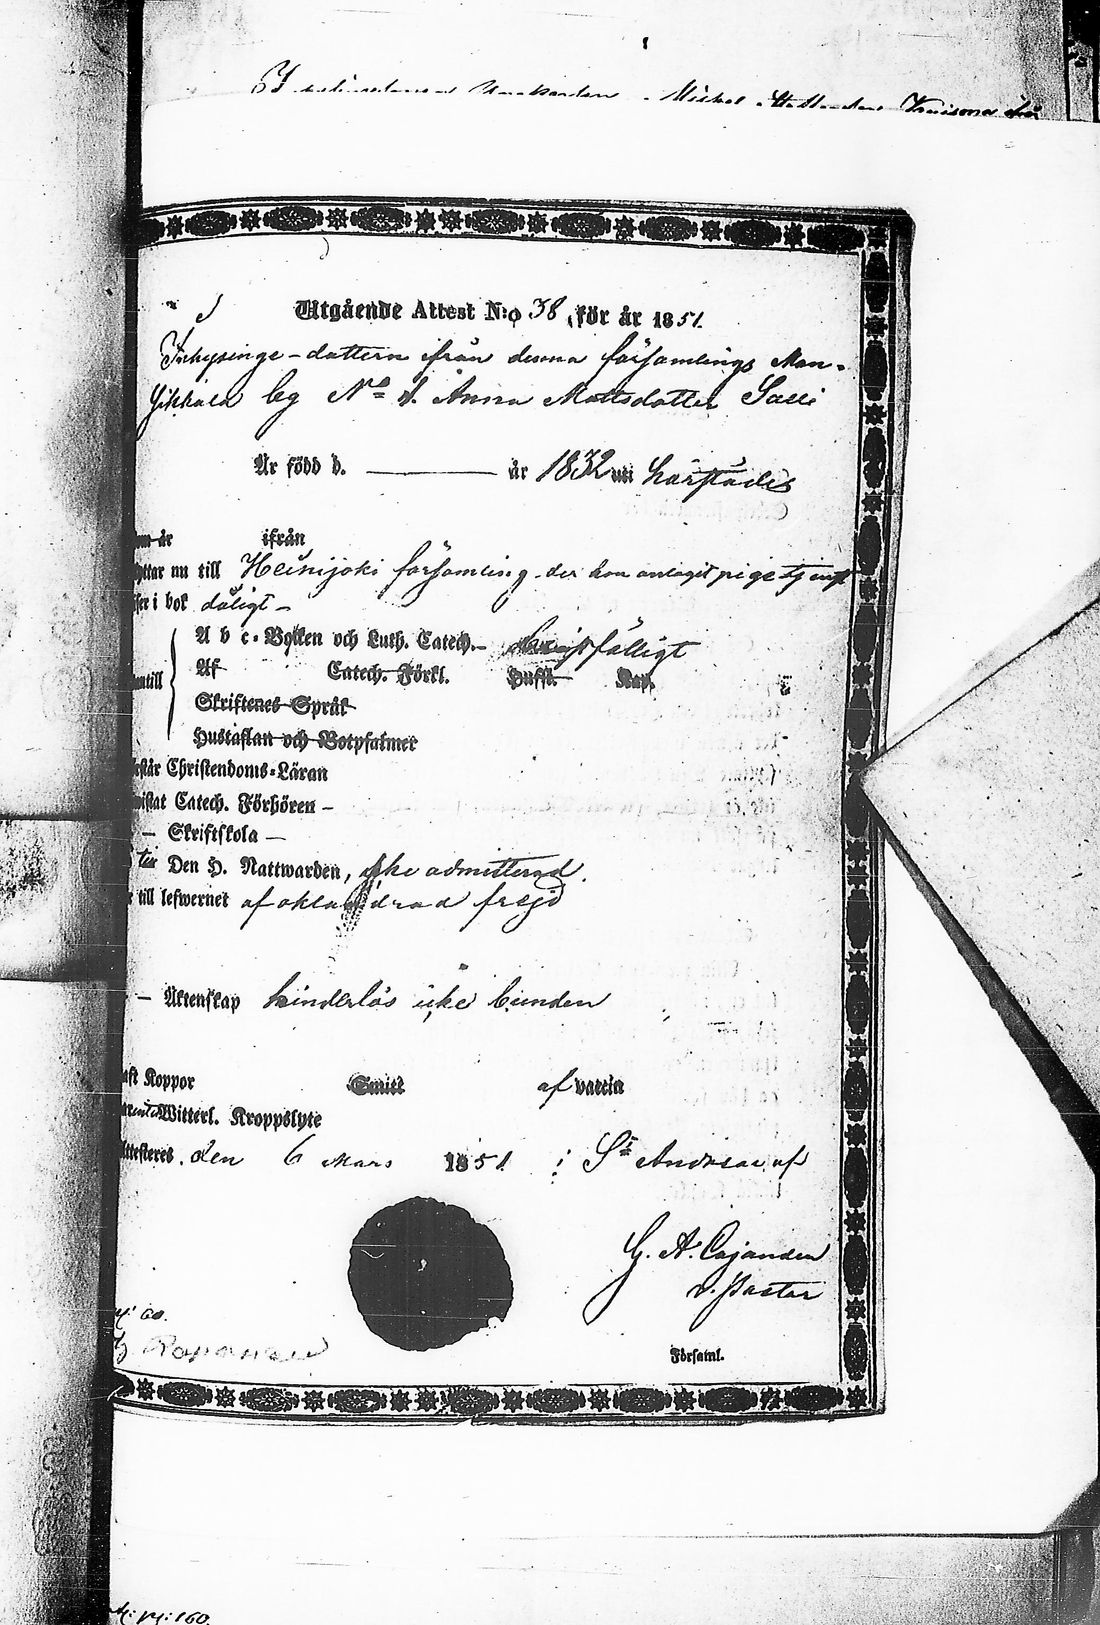 Utgående Attest N:o 38 för år 1851.
Inhysinge-dottern ifrån denna församlings Man-
sikkala by N:o 1. Anna Mattsdotter Salli
Är född d. ——— år 1832 uti härstädes
om år ifrån
yttar nu till Heinijoki församling der hon antagit pigetjenst
ser i bok dåligt –
A b c-Boken och Luth. Catech.– bristfälligt
Af Catech. Förkl. Husst. Kap.
antill
Skriftenes Språk
Hustaflan och Botpsalmer
rstår Christendoms-Läran
wistat Catech. Förhören –
– Skriftskola –
Den H. Nattwarden, icke admitterad.
r till lefwernet af oklandrad frejd
– Äktenskap hinderlös icke bunden
aft Koppor Smitt af vaccin
Witterl. Kroppslyte
ttesteras, den 6 Mars 1851 i S:t Andreae af
G. A. Cajander
v. Pastor
Församl.